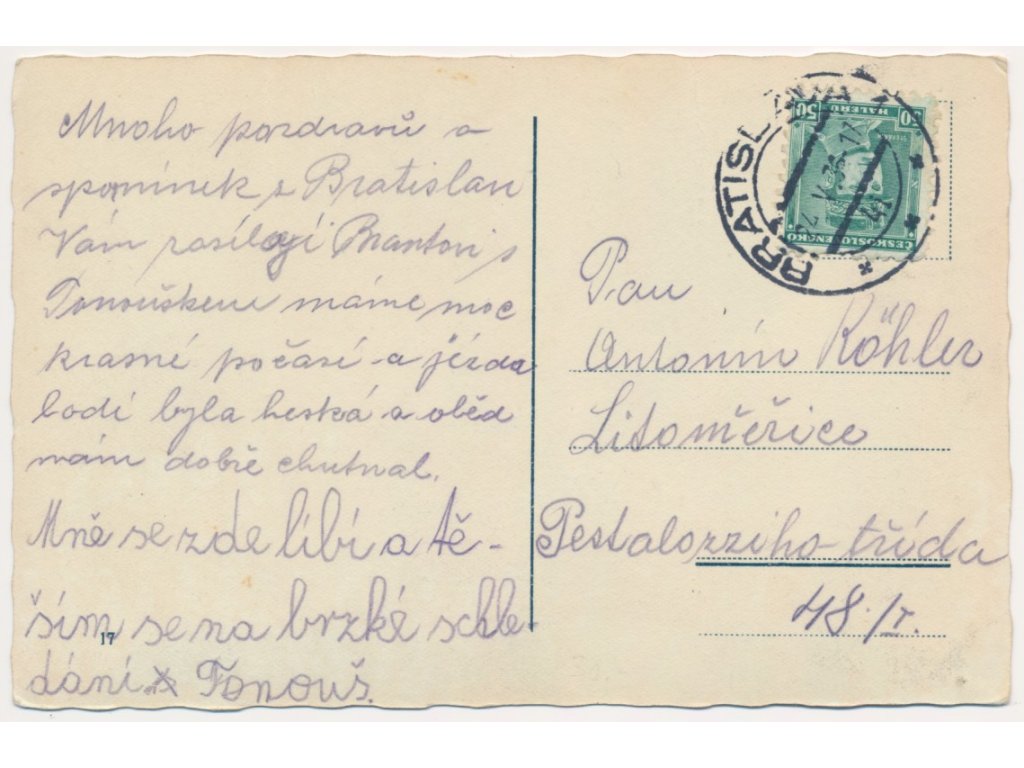 Mnoho pozdravů a
spomínek z Bratislavy
Vám zasílají s
Tonouškem máme moc
krasné počasí a jízda
lodí byla heská a oběd
nám dobře chutnal.
Mně se zde líbí a tě-
ším se na brzké schle
dání Tonouš.
17
BRATISLAVA
50 HALÉŘŮ 50
ČESKOSLOVENSKO
Pan
Antonín Köhler
Litoměřice
Pestalozziho třída
48./I.